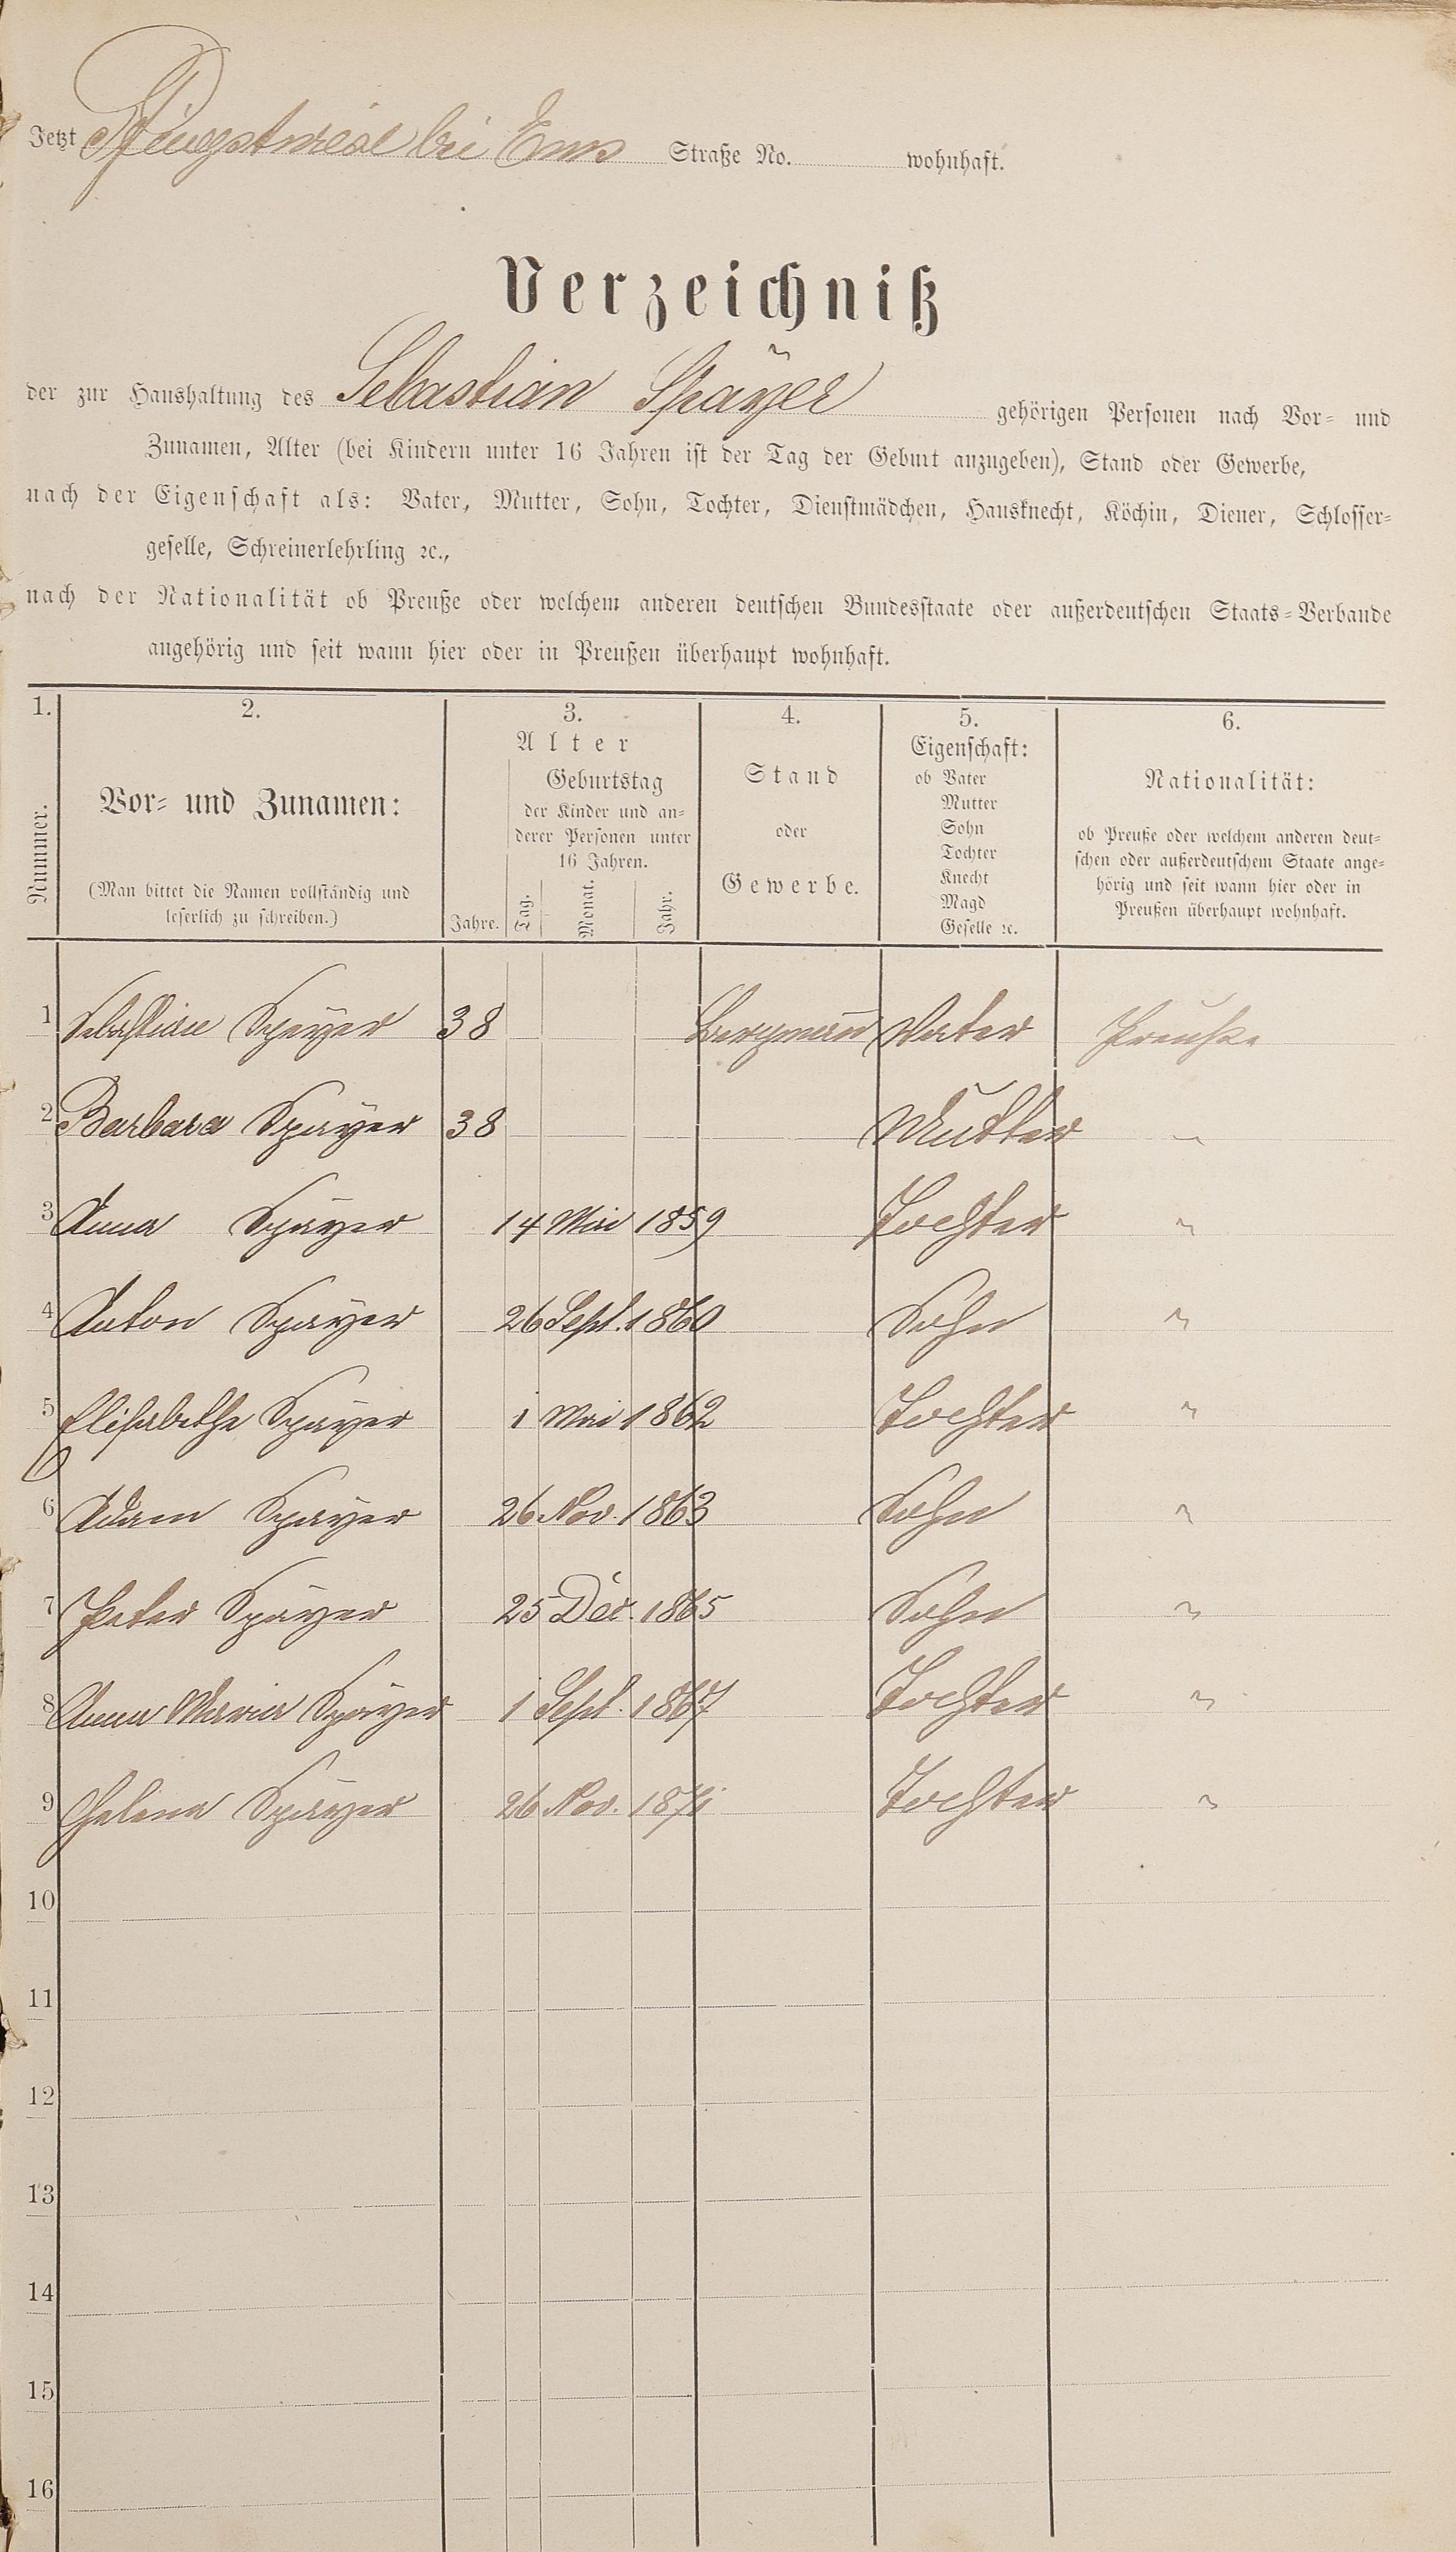 Jetzt Pfingstwiese bei Ems Straße No. wohnhaft.
Verzeichniß
der zur Haushaltung des Sebastian Spayer gehörigen Personen nach Vor- und
Zunamen, Alter (bei Kindern unter 16 Jahren ist der Tag der Geburt anzugeben), Stand oder Gewerbe,
nach der Eigenschaft als: Vater, Mutter, Sohn, Tochter, Dienstmädchen, Hausknecht, Köchin, Diener, Schlosser-
geselle, Schreinerlehrling ꝛc.,
nach der Nationalität ob Preuße oder welchem anderen deutschen Bundesstaate oder außerdeutschen Staats-Verbande
angehörig und seit wann hier oder in Preußen überhaupt wohnhaft.
1. 2. 3. 4. 5. 6.
Nummer.
Vor- und Zunamen:
(Man bittet die Namen vollständig und
leserlich zu schreiben.)
Alter
Geburtstag
der Kinder und an-
derer Personen unter
16 Jahren.
Jahre. Tag. Monat. Jahr.
Stand
oder
Gewerbe.
Eigenschaft:
ob Vater
Mutter
Sohn
Tochter
Knecht
Magd
Geselle ꝛc.
Nationalität:
ob Preuße oder welchem anderen deut-
schen oder außerdeutschem Staate ange-
hörig und seit wann hier oder in
Preußen überhaupt wohnhaft.
1 Sebastian Spayer 38 Bergmann Vater Preuße
2 Barbara Spayer 38 Mutter "
3 Anna Spayer 14 Mai 1859 Tochter "
4 Anton Spayer 26 Sept. 1860 Sohn "
5 Elisabetha Spayer 1 Mai 1862 Tochter "
6 Adam Spayer 26 Nov. 1863 Sohn "
7 Peter Spayer 25 Dec. 1865 Sohn "
8 Anna Maria Spayer 1 Sept. 1867 Tochter "
9 Helena Spayer 26 Nov. Tochter "
10
11
12
13
14
15
16